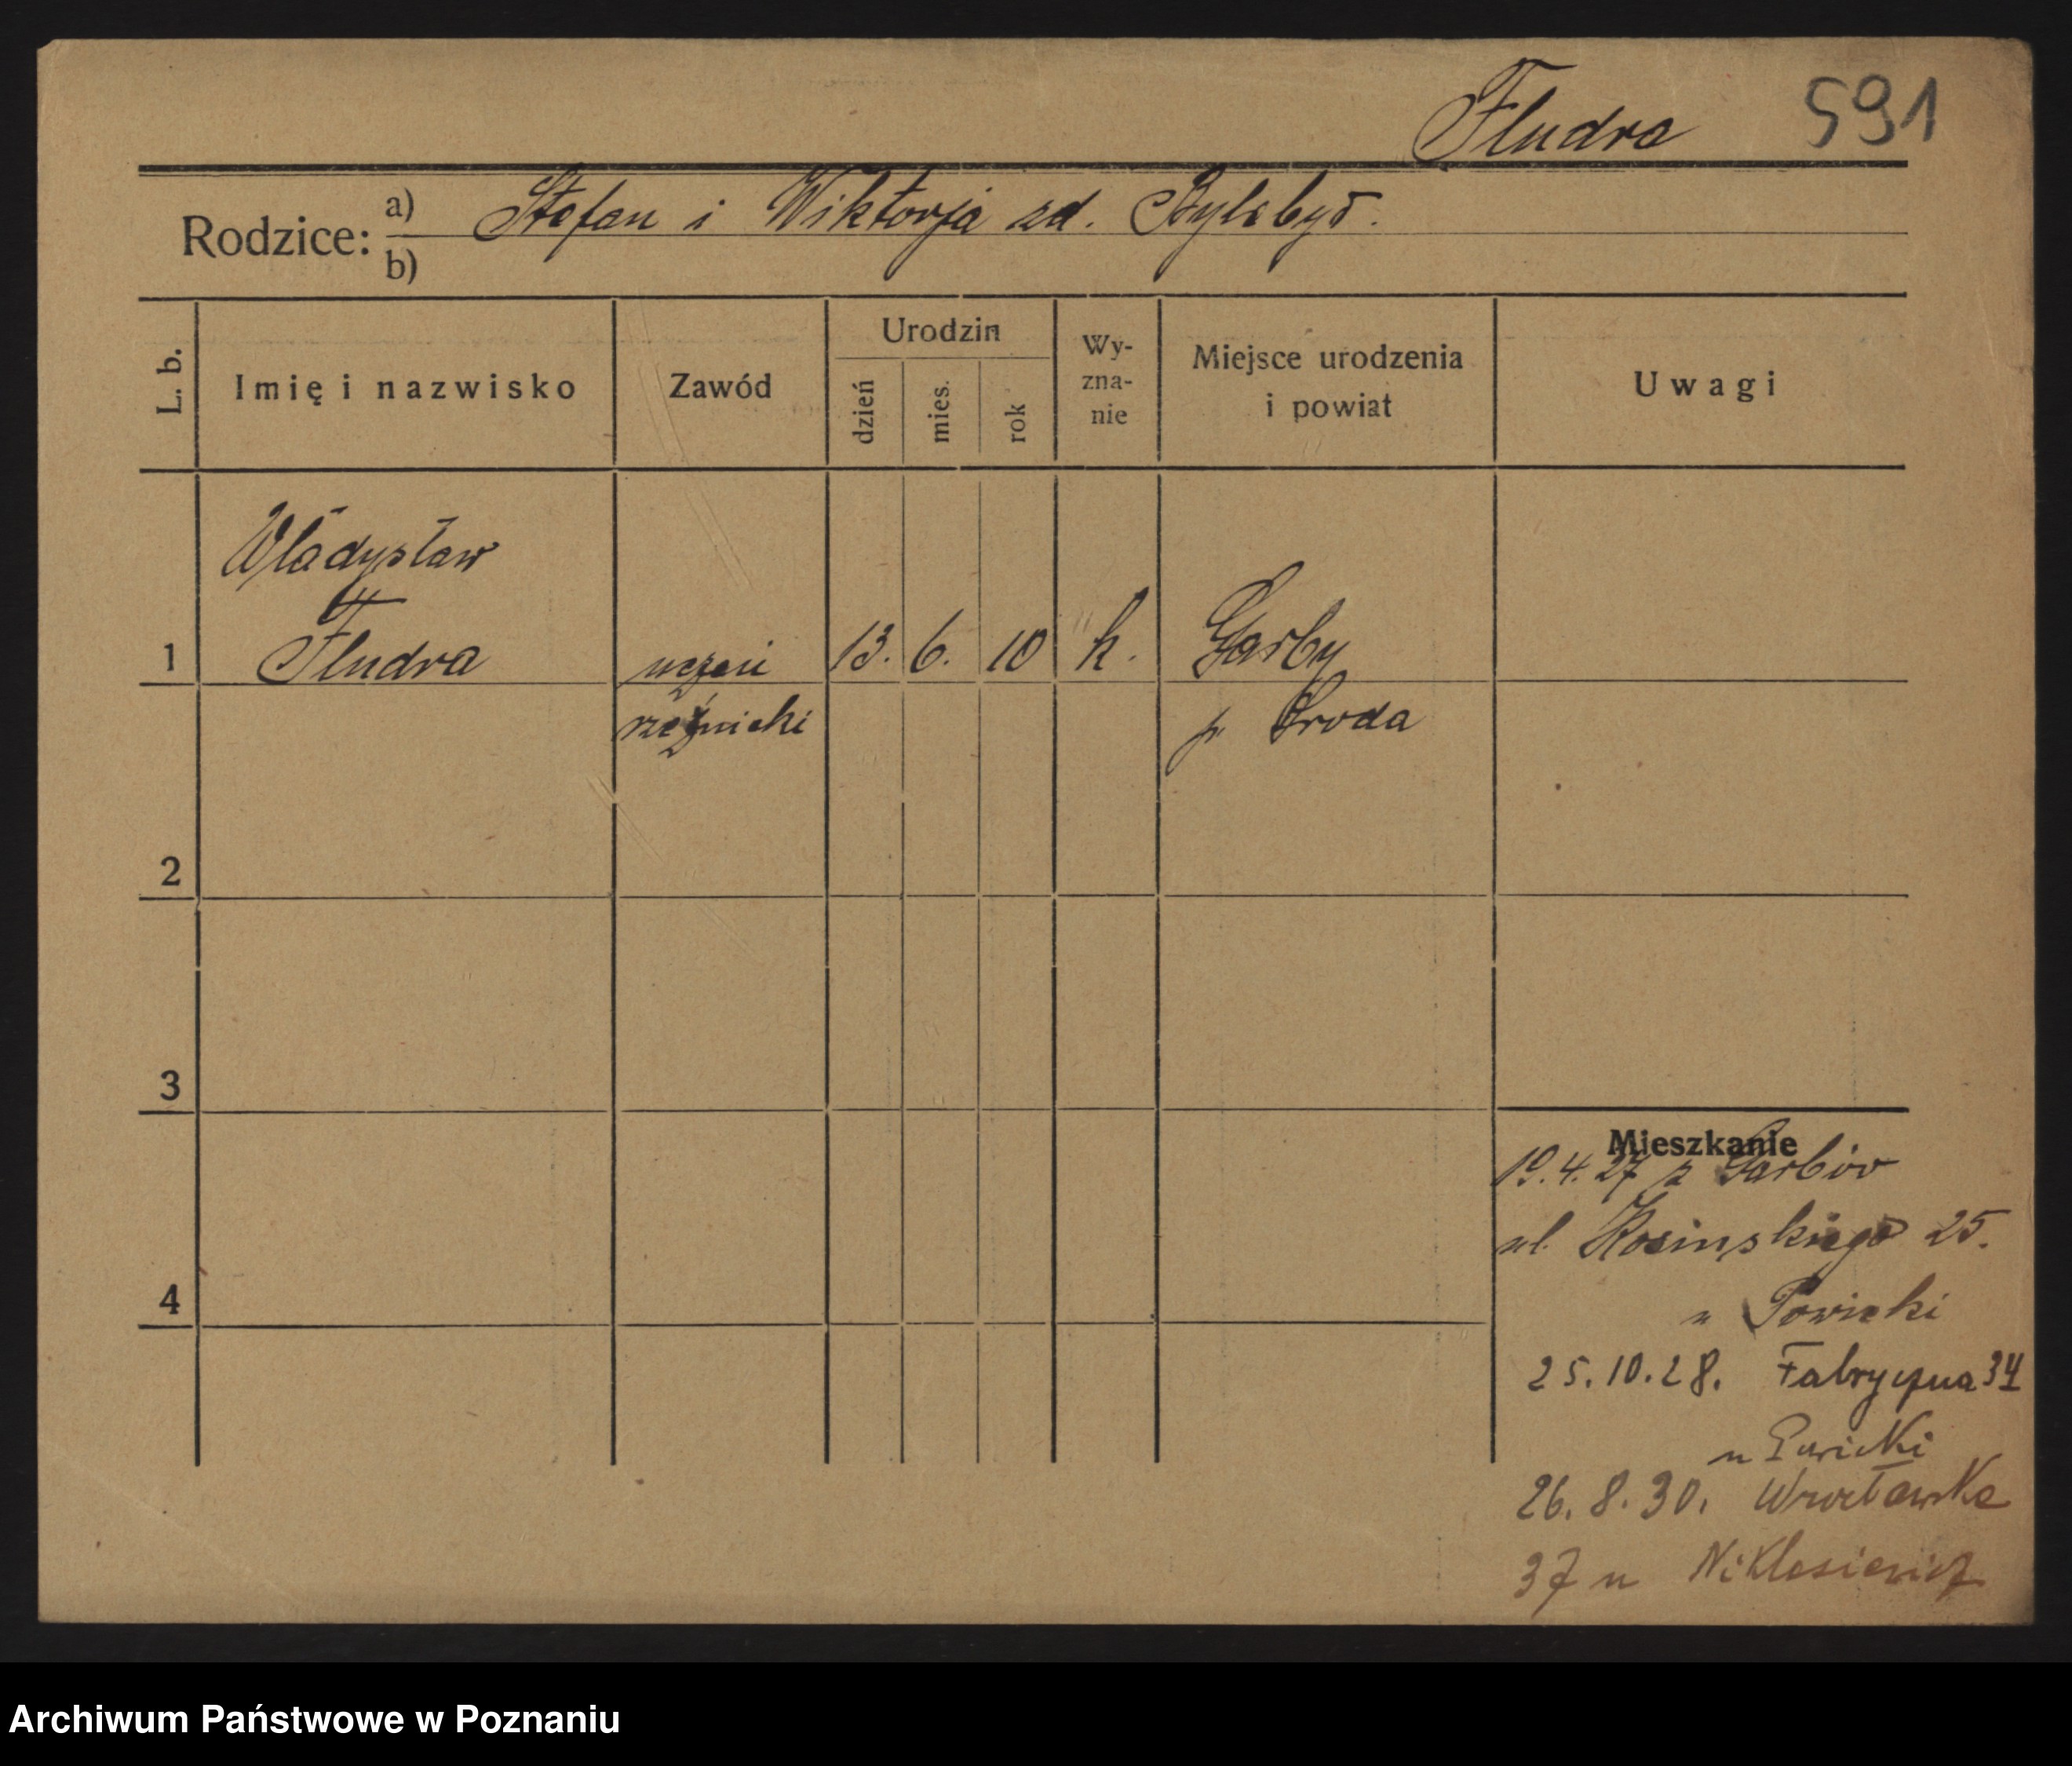 Fludra 591
Rodzice: a) Stefan i Wiktorja zd. Bylebył.
b)
L. b. Imię i nazwisko Zawód Urodzin dzień mies. rok Wy-zna-nie Miejsce urodzenia i powiat Uwagi
Władysław
1 Fludra uczeń 13. 6. 10 k. Garby
rzeźnicki p Środa
2
3
Mieszkanie
19.4.27 z Garbów
ul. Kosinskiego 25.
4
u
25.10.28. Fabryczna 34
u
26.8.30. Wrocławska
37 u
Archiwum Państwowe w Poznaniu